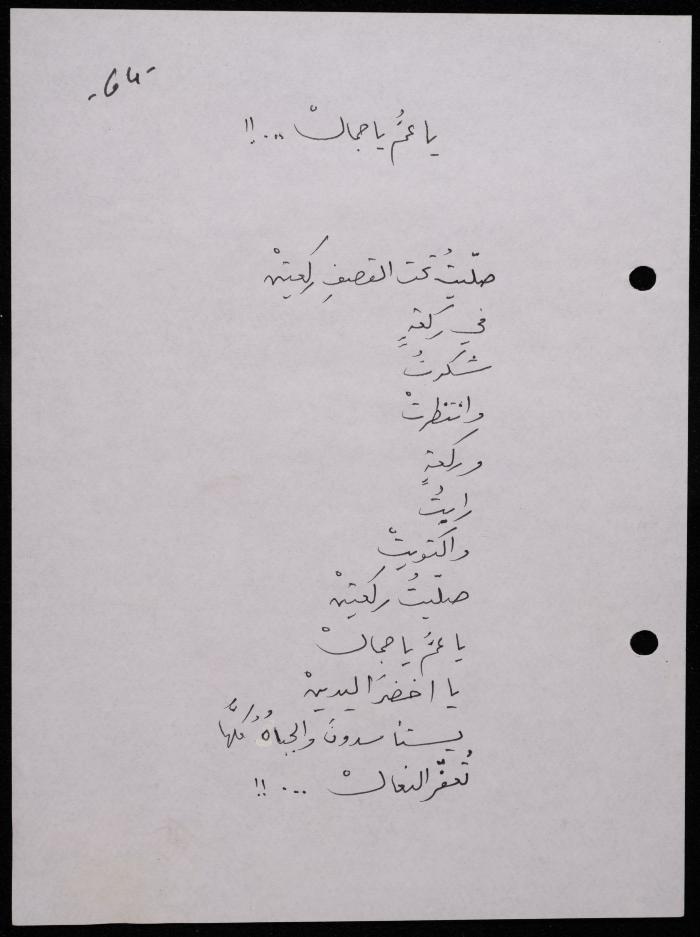 يا عمُّ يا جمالْ ...!!
صلّيتُ تحت القصفِ ركعتينْ
في ركعةٍ
شكرتُ
وانتظرتْ
وركعةٍ
رايتُ
واكتويتْ
صلّيتُ ركعتينْ
يا عمُّ يا جمالْ
يا اخضرَ اليدينْ
يستأسدونَ والجباهُ كلُّها
تُعفّر النعالْ ...!!